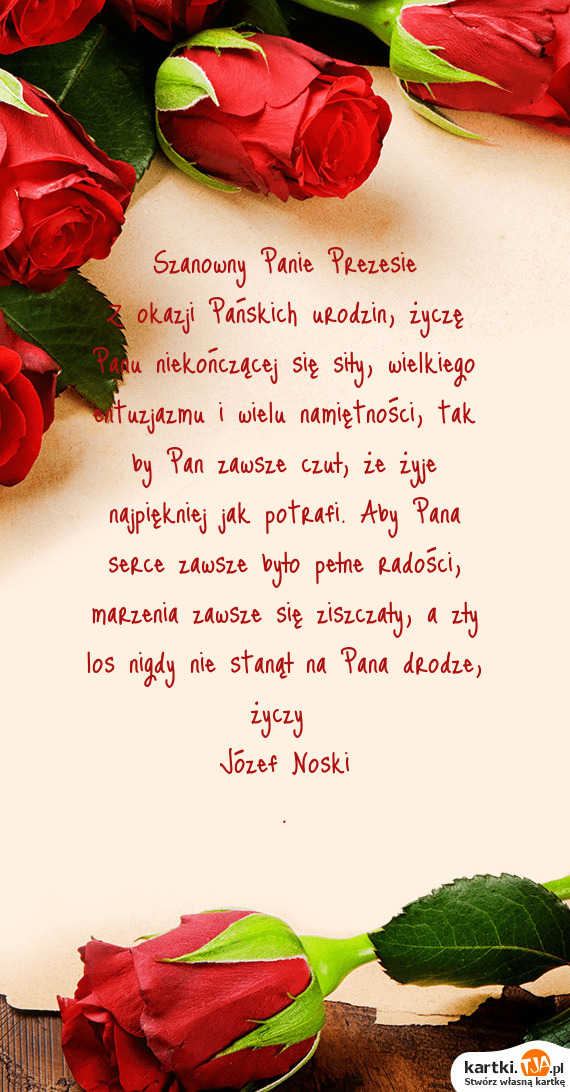 Szanowny Panie Prezesie
Z okazji Pańskich urodzin, życzę
Panu niekończącej się siły, wielkiego
entuzjazmu i wielu namiętności, tak
by Pan zawsze czuł, że żyje
najpiękniej jak potrafi. Aby Pana
serce zawsze było pełne radości,
marzenia zawsze się ziszczały, a zły
los nigdy nie stanął na Pana drodze,
życzy
Józef Noski
.
kartki.TJA.pl
Stwórz własną kartkę